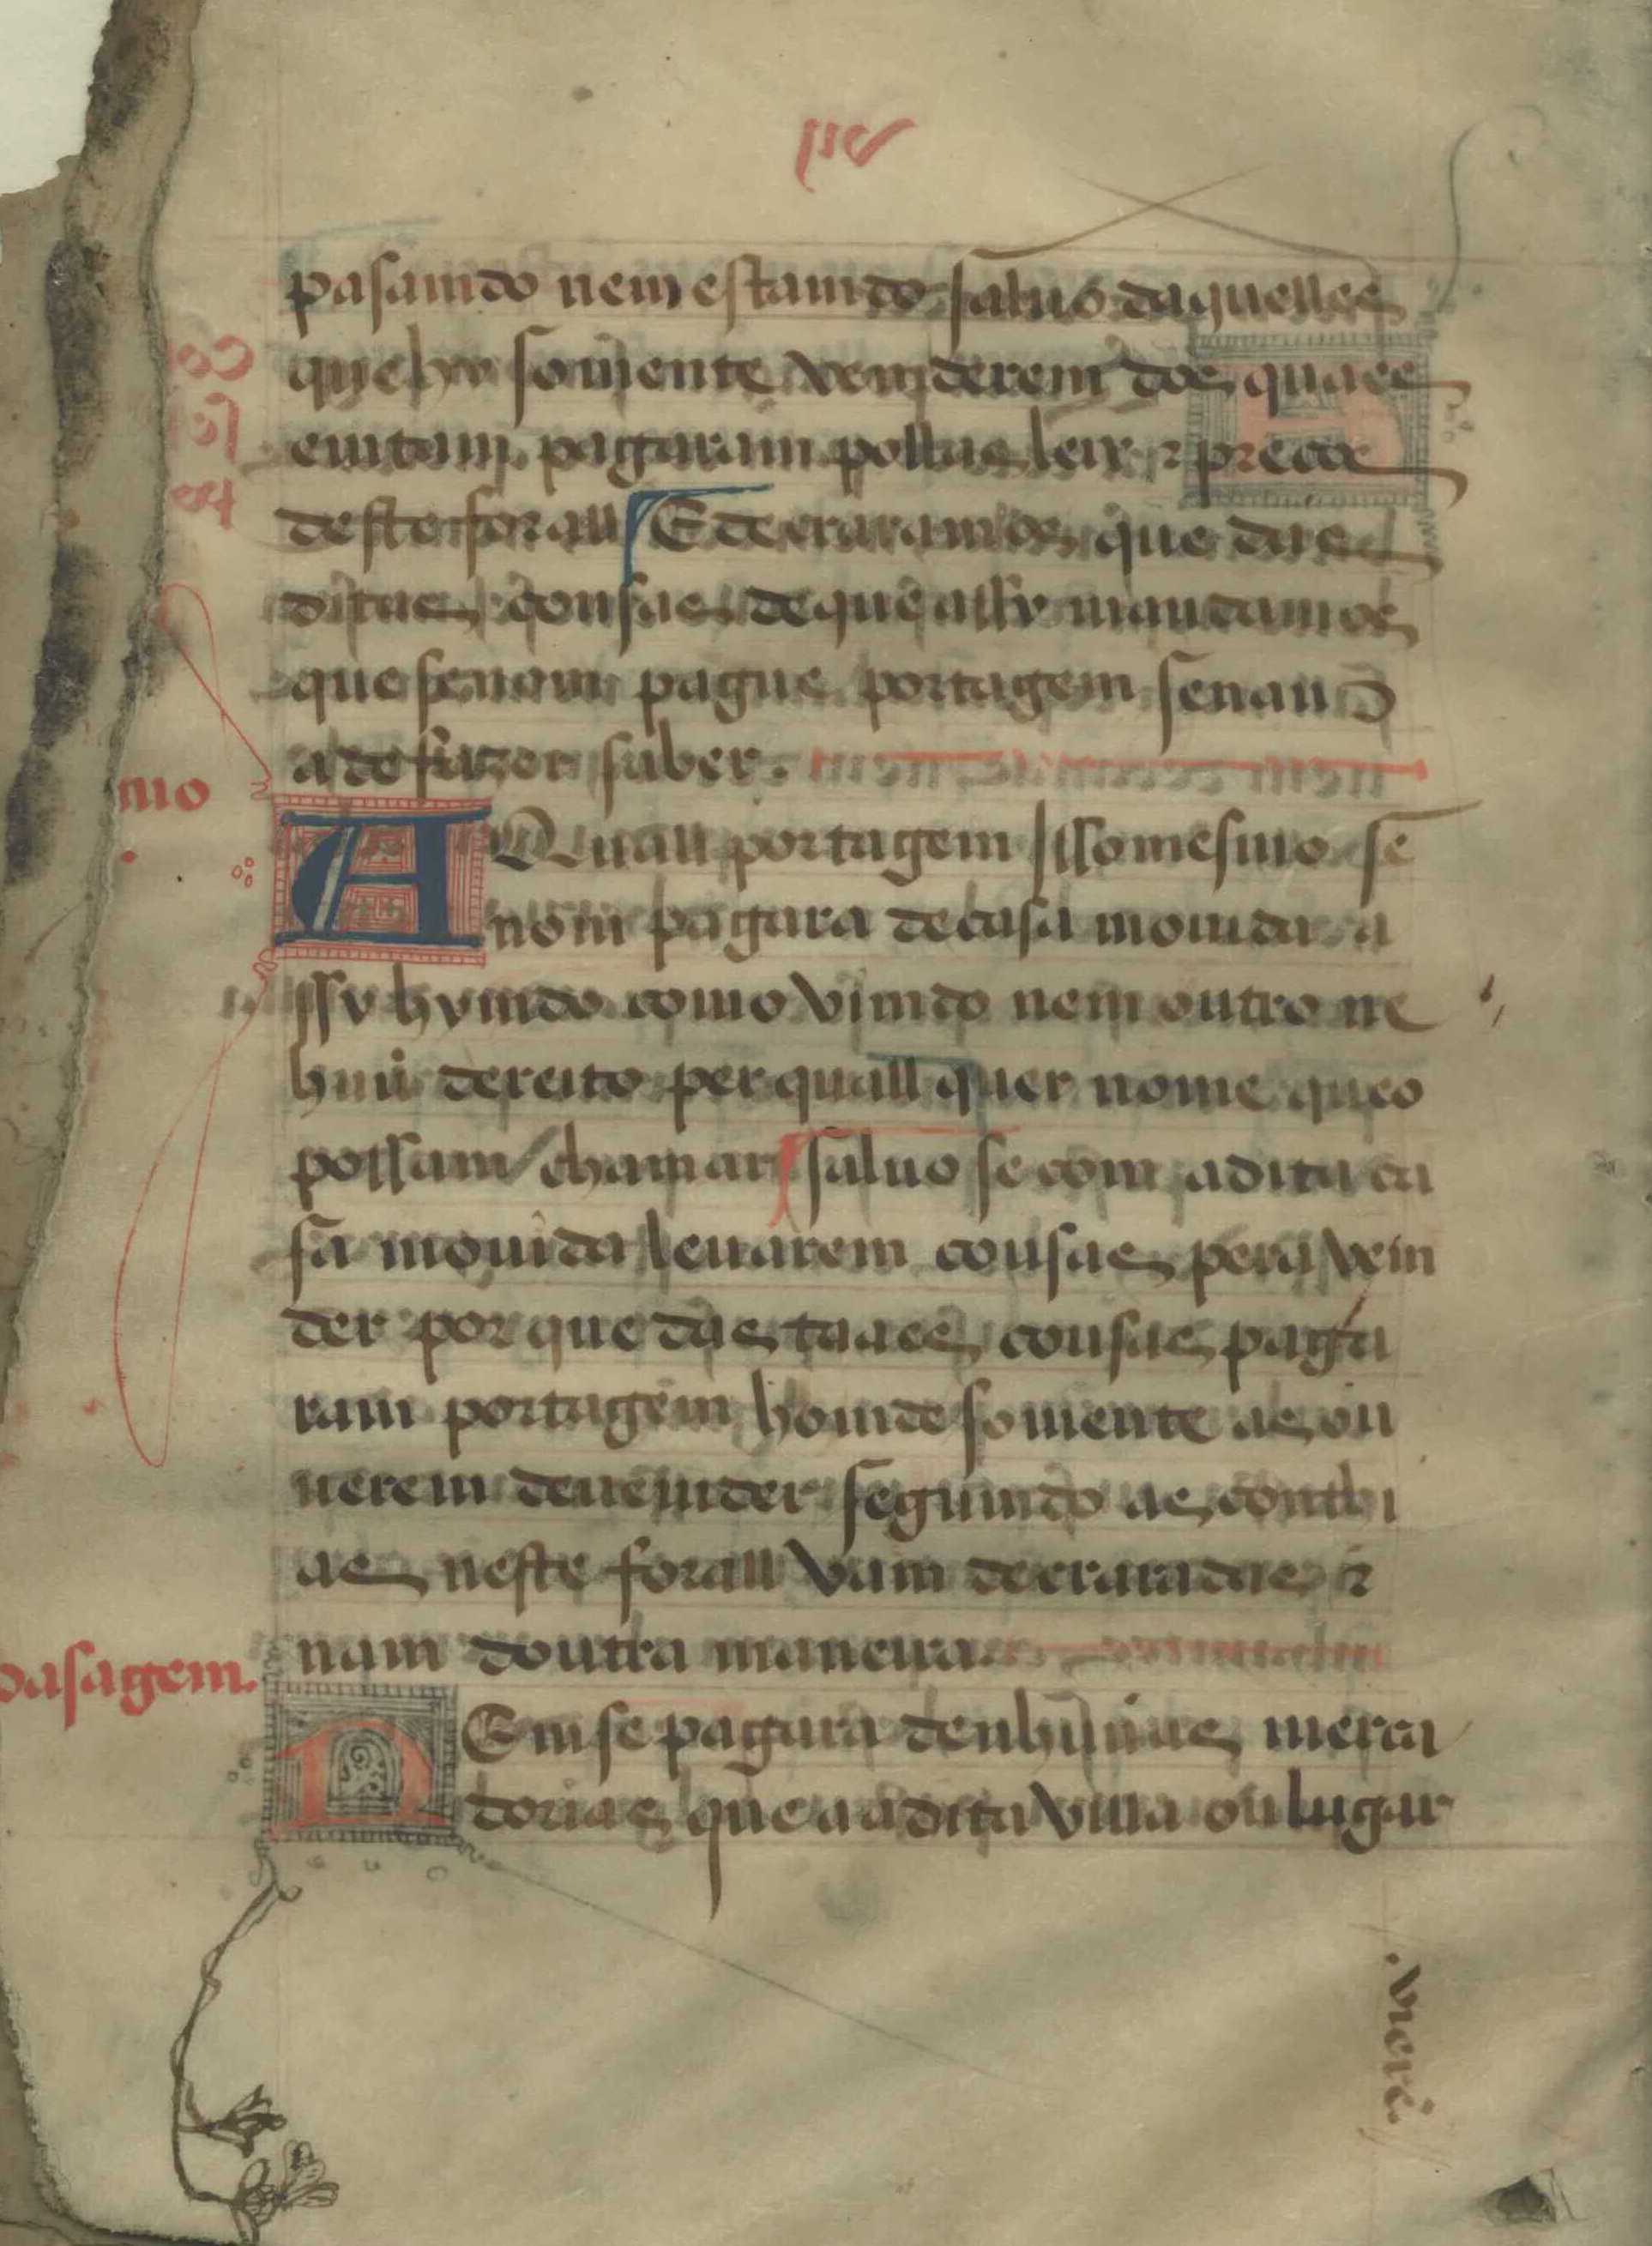 pasamdo nem estamdo saluo daquelles
que hy somente vemderem dos quaes
emtam pagaram pollas leix ⁊ preços
deste forall E decraramos que das
ditas cousas de que assy mandamos
que se nom pague portagem se nam
a de fazer saber.
mo
A Quall portagem Jssomesmo se
nom pagara de casa mouida a
ssy hymdo como vimdo nem outro ne
huũ dereito per quall quer nome que o
possam chamar saluo se com a dita ca
sa mouida leuarem cousas pera vem
der por que das taaes cousas paga
ram portagem homde somente as ou
uerem de vemder segumdo as conthi
as neste forall vam decraradas ⁊
nam doutra maneira.
pasagem.
N Em se pagara de nhuũas merca
dorias que aa dita villa ou lugar
.vierē.